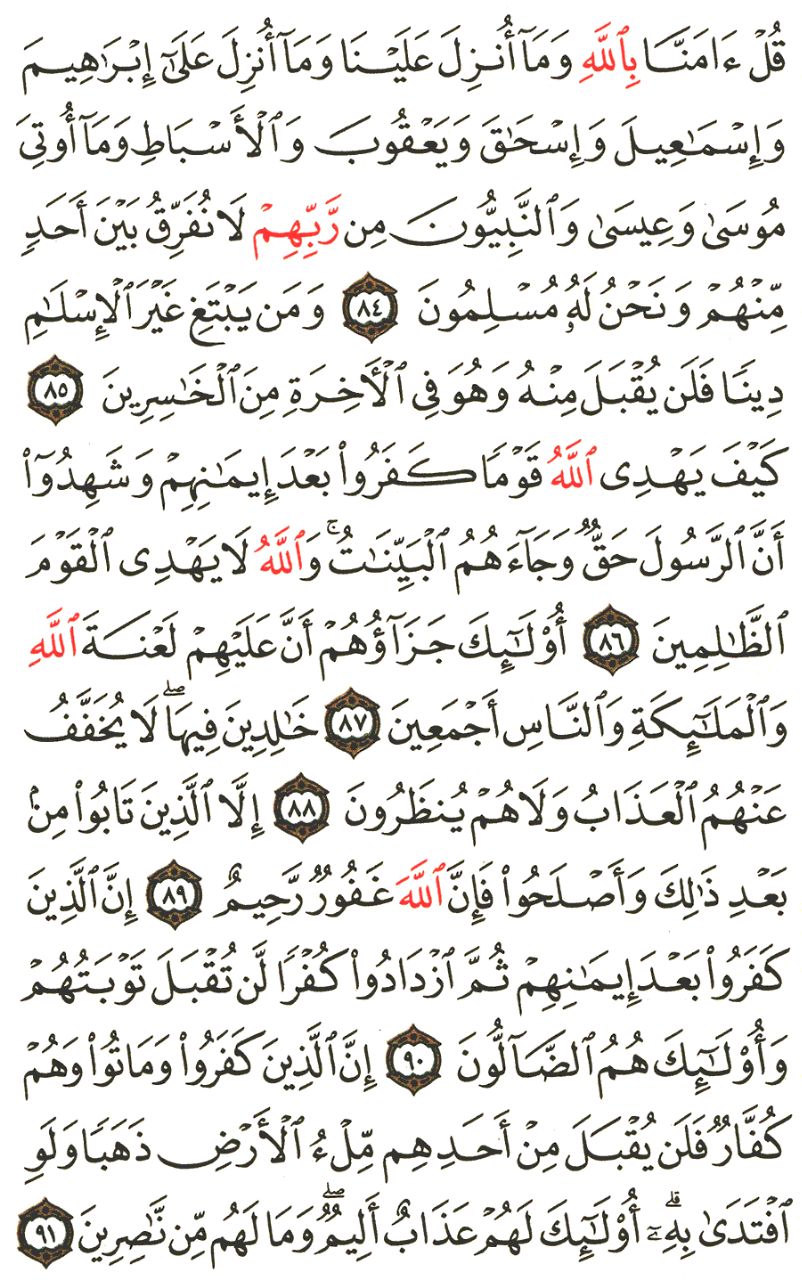 قُلْ ءَامَنَّا بِٱللَّهِ وَمَآ أُنزِلَ عَلَيْنَا وَمَآ أُنزِلَ عَلَىٰٓ إِبْرَٰهِيمَ
وَإِسْمَٰعِيلَ وَإِسْحَٰقَ وَيَعْقُوبَ وَٱلْأَسْبَاطِ وَمَآ أُوتِىَ
مُوسَىٰ وَعِيسَىٰ وَٱلنَّبِيُّونَ مِن رَّبِّهِمْ لَا نُفَرِّقُ بَيْنَ أَحَدٍ
مِّنْهُمْ وَنَحْنُ لَهُۥ مُسْلِمُونَ ٨٤ وَمَن يَبْتَغِ غَيْرَ ٱلْإِسْلَٰمِ
دِينًا فَلَن يُقْبَلَ مِنْهُ وَهُوَ فِى ٱلْأَخِرَةِ مِنَ ٱلْخَٰسِرِينَ ٨٥
كَيْفَ يَهْدِى ٱللَّهُ قَوْمًا كَفَرُوا۟ بَعْدَ إِيمَٰنِهِمْ وَشَهِدُوٓا۟
أَنَّ ٱلرَّسُولَ حَقٌّ وَجَآءَهُمُ ٱلْبَيِّنَٰتُ ۚ وَٱللَّهُ لَا يَهْدِى ٱلْقَوْمَ
ٱلظَّٰلِمِينَ ٨٦ أُو۟لَٰٓئِكَ جَزَآؤُهُمْ أَنَّ عَلَيْهِمْ لَعْنَةَ ٱللَّهِ
وَٱلْمَلَٰٓئِكَةِ وَٱلنَّاسِ أَجْمَعِينَ ٨٧ خَٰلِدِينَ فِيهَا ۖ لَا يُخَفَّفُ
عَنْهُمُ ٱلْعَذَابُ وَلَا هُمْ يُنظَرُونَ ٨٨ إِلَّا ٱلَّذِينَ تَابُوا۟ مِنۢ
بَعْدِ ذَٰلِكَ وَأَصْلَحُوا۟ فَإِنَّ ٱللَّهَ غَفُورٌ رَّحِيمٌ ٨٩ إِنَّ ٱلَّذِينَ
كَفَرُوا۟ بَعْدَ إِيمَٰنِهِمْ ثُمَّ ٱزْدَادُوا۟ كُفْرًا لَّن تُقْبَلَ تَوْبَتُهُمْ
وَأُو۟لَٰٓئِكَ هُمُ ٱلضَّآلُّونَ ٩٠ إِنَّ ٱلَّذِينَ كَفَرُوا۟ وَمَاتُوا۟ وَهُمْ
كُفَّارٌ فَلَن يُقْبَلَ مِنْ أَحَدِهِم مِّلْءُ ٱلْأَرْضِ ذَهَبًا وَلَوِ
ٱفْتَدَىٰ بِهِۦٓ ۗ أُو۟لَٰٓئِكَ لَهُمْ عَذَابٌ أَلِيمٌ ۖ وَمَا لَهُم مِّن نَّٰصِرِينَ ٩١